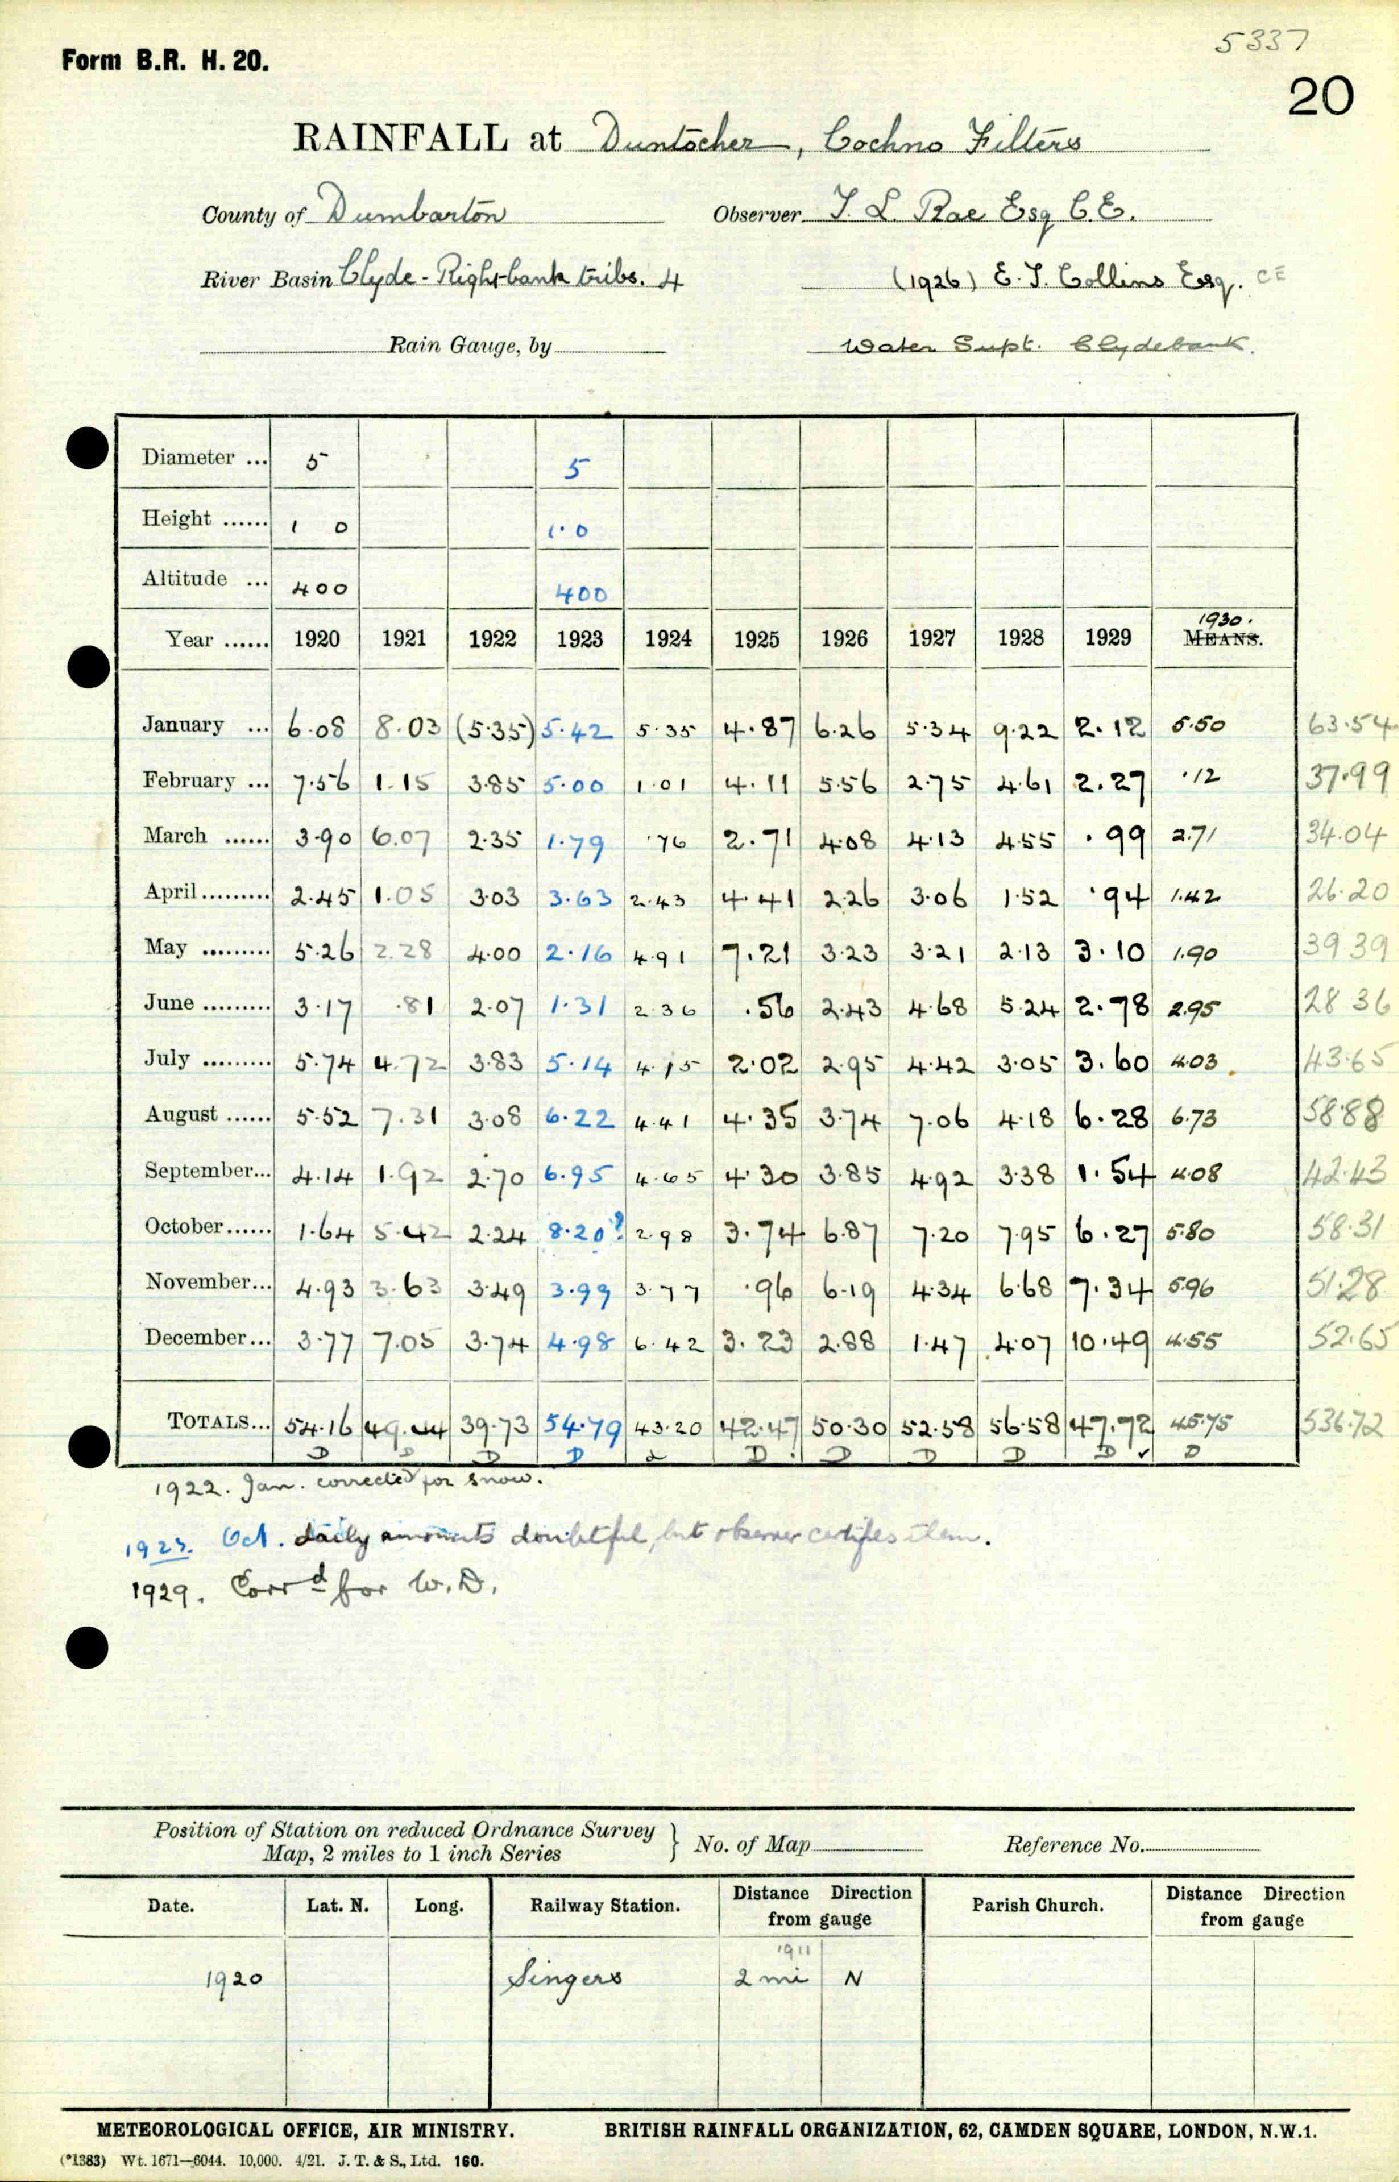 5337
Form B.R. H. 20.
20
RAINFALL at Duntocher, Cochno Filters
County of Dumbarton Observer T. L Rae Esq C.E.
River Basin Clyde - Right-bank tribs. 4 (1926) E. T. Collins Esq. CE
Rain Gauge, by Water Supt. Clydebank.
Diameter ... 5 5
Height ...... 1 0 1·0
Altitude ... 400 400
1930.
Year ...... 1920 1921 1922 1923 1924 1925 1926 1927 1928 1929 MEANS.
January ... 6·08 8.03 (5·35) 5·42 5·35 4·87 6·26 5·34 9·22 2·12 5·50 63·54
February ... 7·56 1.15 3·85 5·00 1·01 4·11 5·56 2·75 4·61 2·27 ·12 37·99
March ...... 3·90 6.07 2·35 1·79 ·76 2·71 4·08 4·13 4·55 ·99 2·71 34·04
April ......... 2·45 1.05 3·03 3·63 2·43 4·41 2·26 3·06 1·52 ·94 1·42 26·20
May ......... 5·26 2.28 4·00 2·16 4·91 7·21 3·23 3·21 2·13 3·10 1·90 39 39
June ......... 3·17 ·81 2·07 1·31 2·36 ·56 2·43 4·68 5·24 2·78 2·95 28 36
July ......... 5·74 4.72 3·83 5·14 4·15 2·02 2·95 4·42 3·05 3·60 4·03 43·65
August ...... 5·52 7.31 3·08 6·22 4·41 4·35 3·74 7·06 4·18 6·28 6·73 58·88
September... 4·14 1.92 2·70 6·95 4·65 4·30 3·85 4·92 3·38 1·54 4·08 42·43
October...... 1·64 5.42 2·24 8·20? 2·98 3·74 6·87 7·20 7·95 6·27 5·80 58·31
November... 4·93 3.63 3·49 3·99 3·77 ·96 6·19 4·34 6·68 7·34 5·96 51·28
December... 3·77 7.05 3·74 4·98 6·42 3·23 2·88 1·47 4·07 10·49 4·55 52·65
TOTALS... 54·16 49.44 39·73 54·79 43·20 42·47 50·30 52·58 56·58 47·72 45·75 536·72
D D D D D D D D D ✓ D
1922. Jan. corrected for snow.
1923. Oct. daily amounts doubtful, but observer certifies them.
1929. Corrd for W.D.
Position of Station on reduced Ordnance Survey
Map, 2 miles to 1 inch Series } No. of Map Reference No.
Date. Lat. N. Long. Railway Station. Distance Direction from gauge Parish Church. Distance Direction from gauge
1911
1920 Singers 2 mi N
METEOROLOGICAL OFFICE, AIR MINISTRY. BRITISH RAINFALL ORGANIZATION, 62, CAMDEN SQUARE, LONDON, N.W.1.
(*1383) Wt. 1671—6044. 10,000. 4/21. J. T. & S., Ltd. 160.